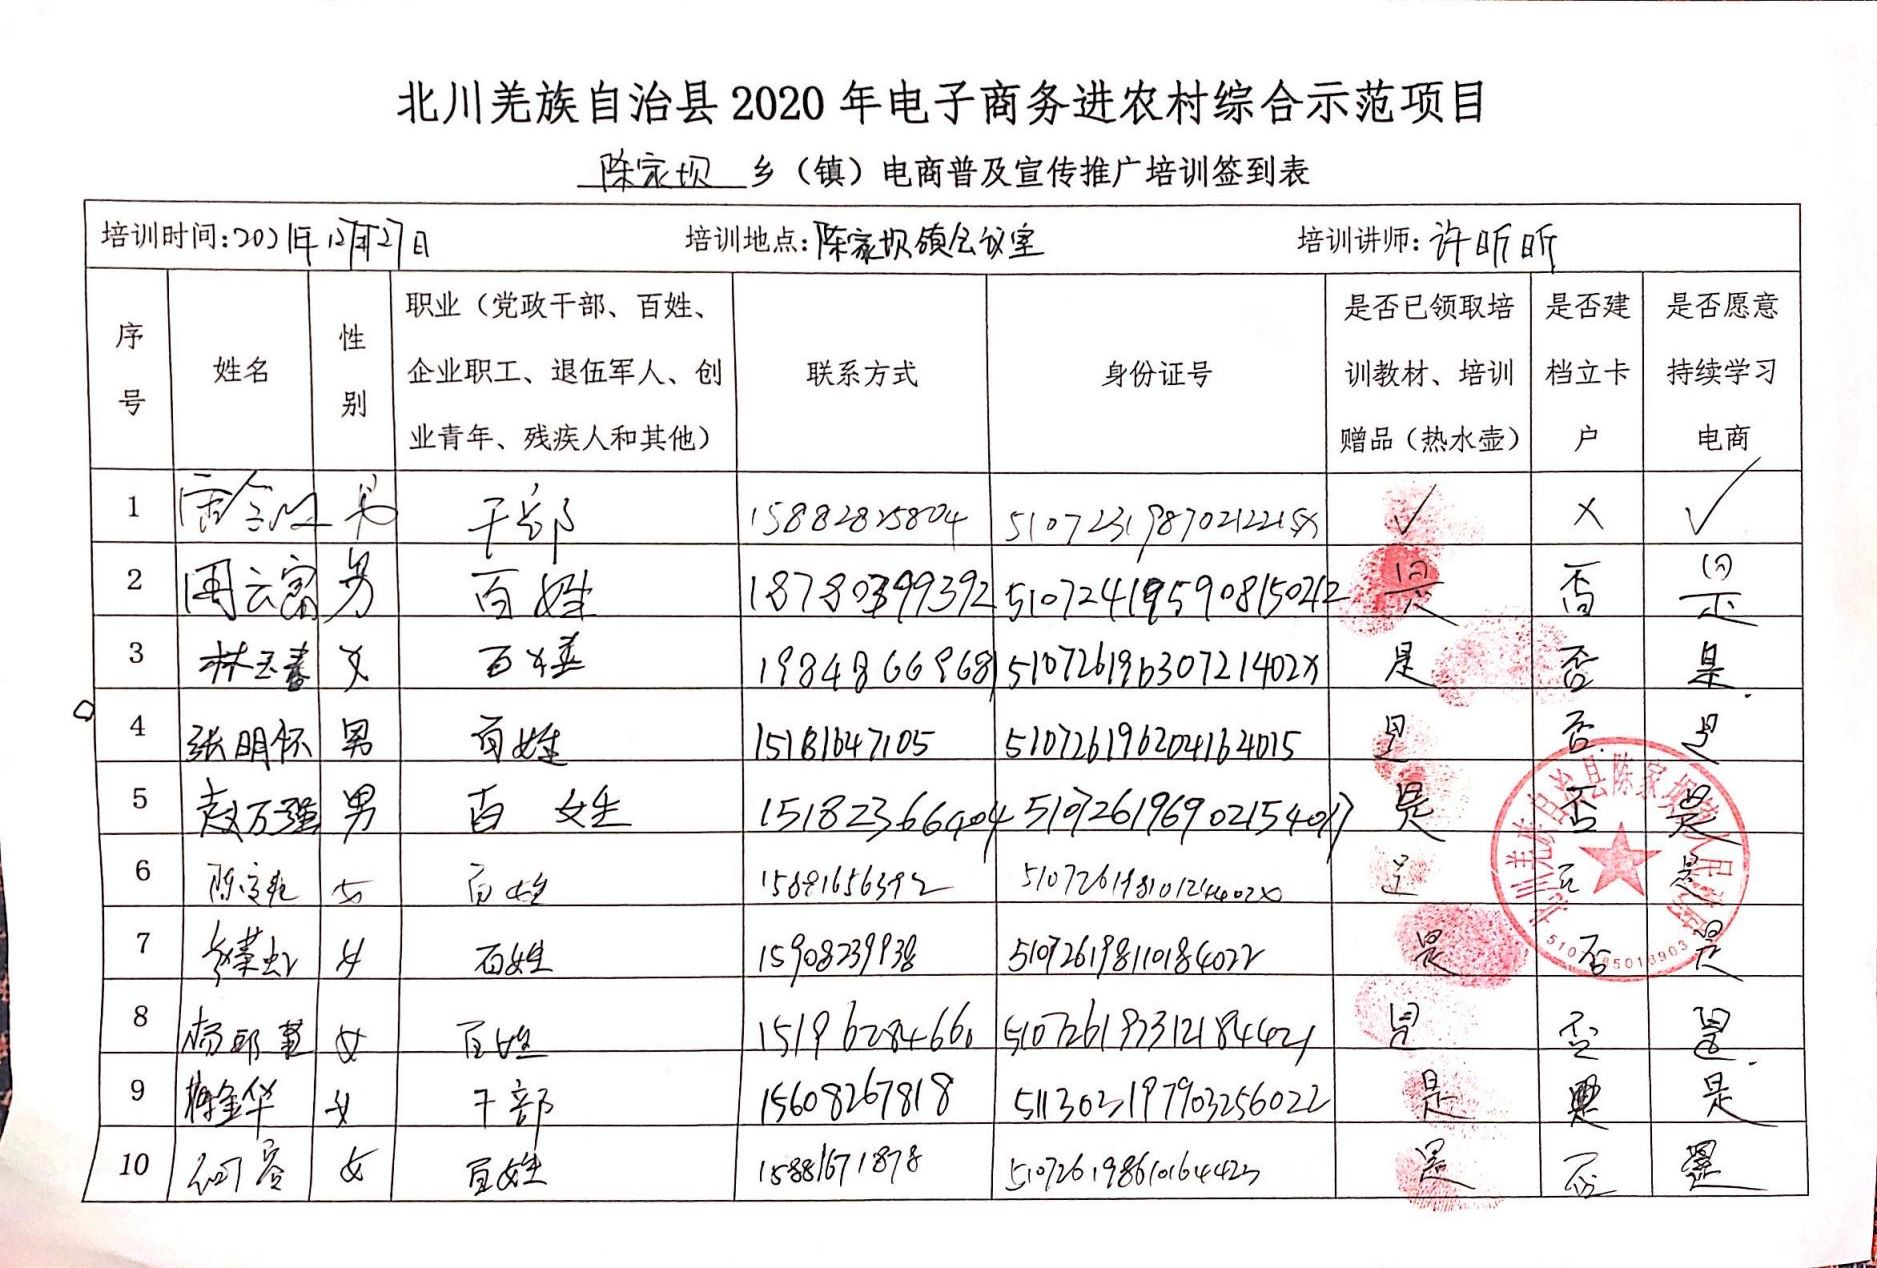 北川羌族自治县2020年电子商务进农村综合示范项目
陈家坝 乡（镇）电商普及宣传推广培训签到表
培训时间:2021年12月27日 培训地点:陈家坝镇会议室 培训讲师:许昕昕
序号 姓名 性别 职业（党政干部、百姓、企业职工、退伍军人、创业青年、残疾人和其他） 联系方式 身份证号 是否已领取培训教材、培训赠品（热水壶） 是否建档立卡户 是否愿意持续学习电商
1 男 干部 15882825804 ✓ × ✓
2 周云富 男 百姓 18780399392 是 否 是
3 林玉春 女 百姓 19848669681 51072619630721402X 是 否 是.
4 张明怀 男 百姓 15181647105 510726196204164015 是 否 是
5 赵万强 男 百姓 15182366404 510726196902154017 是 否 是
6 女 百姓 51072619810124402X 是 否 是
7 女 百姓 15908239938 510726198110184022 是 否 是
8 女 百姓 15196284660 510726197312184421 是 否 是.
9 女 干部 15608267818 511302197903256022 是 是
10 何容 女 百姓 15881671878 510726198610164423 是 否 是
北川羌族自治县陈家坝镇人民政府